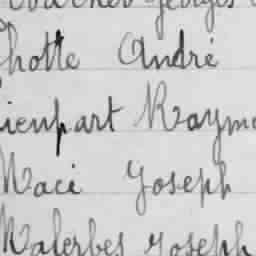 Georges
hotte André
ienpart Raym
Maci Joseph
Malerbes Joseph